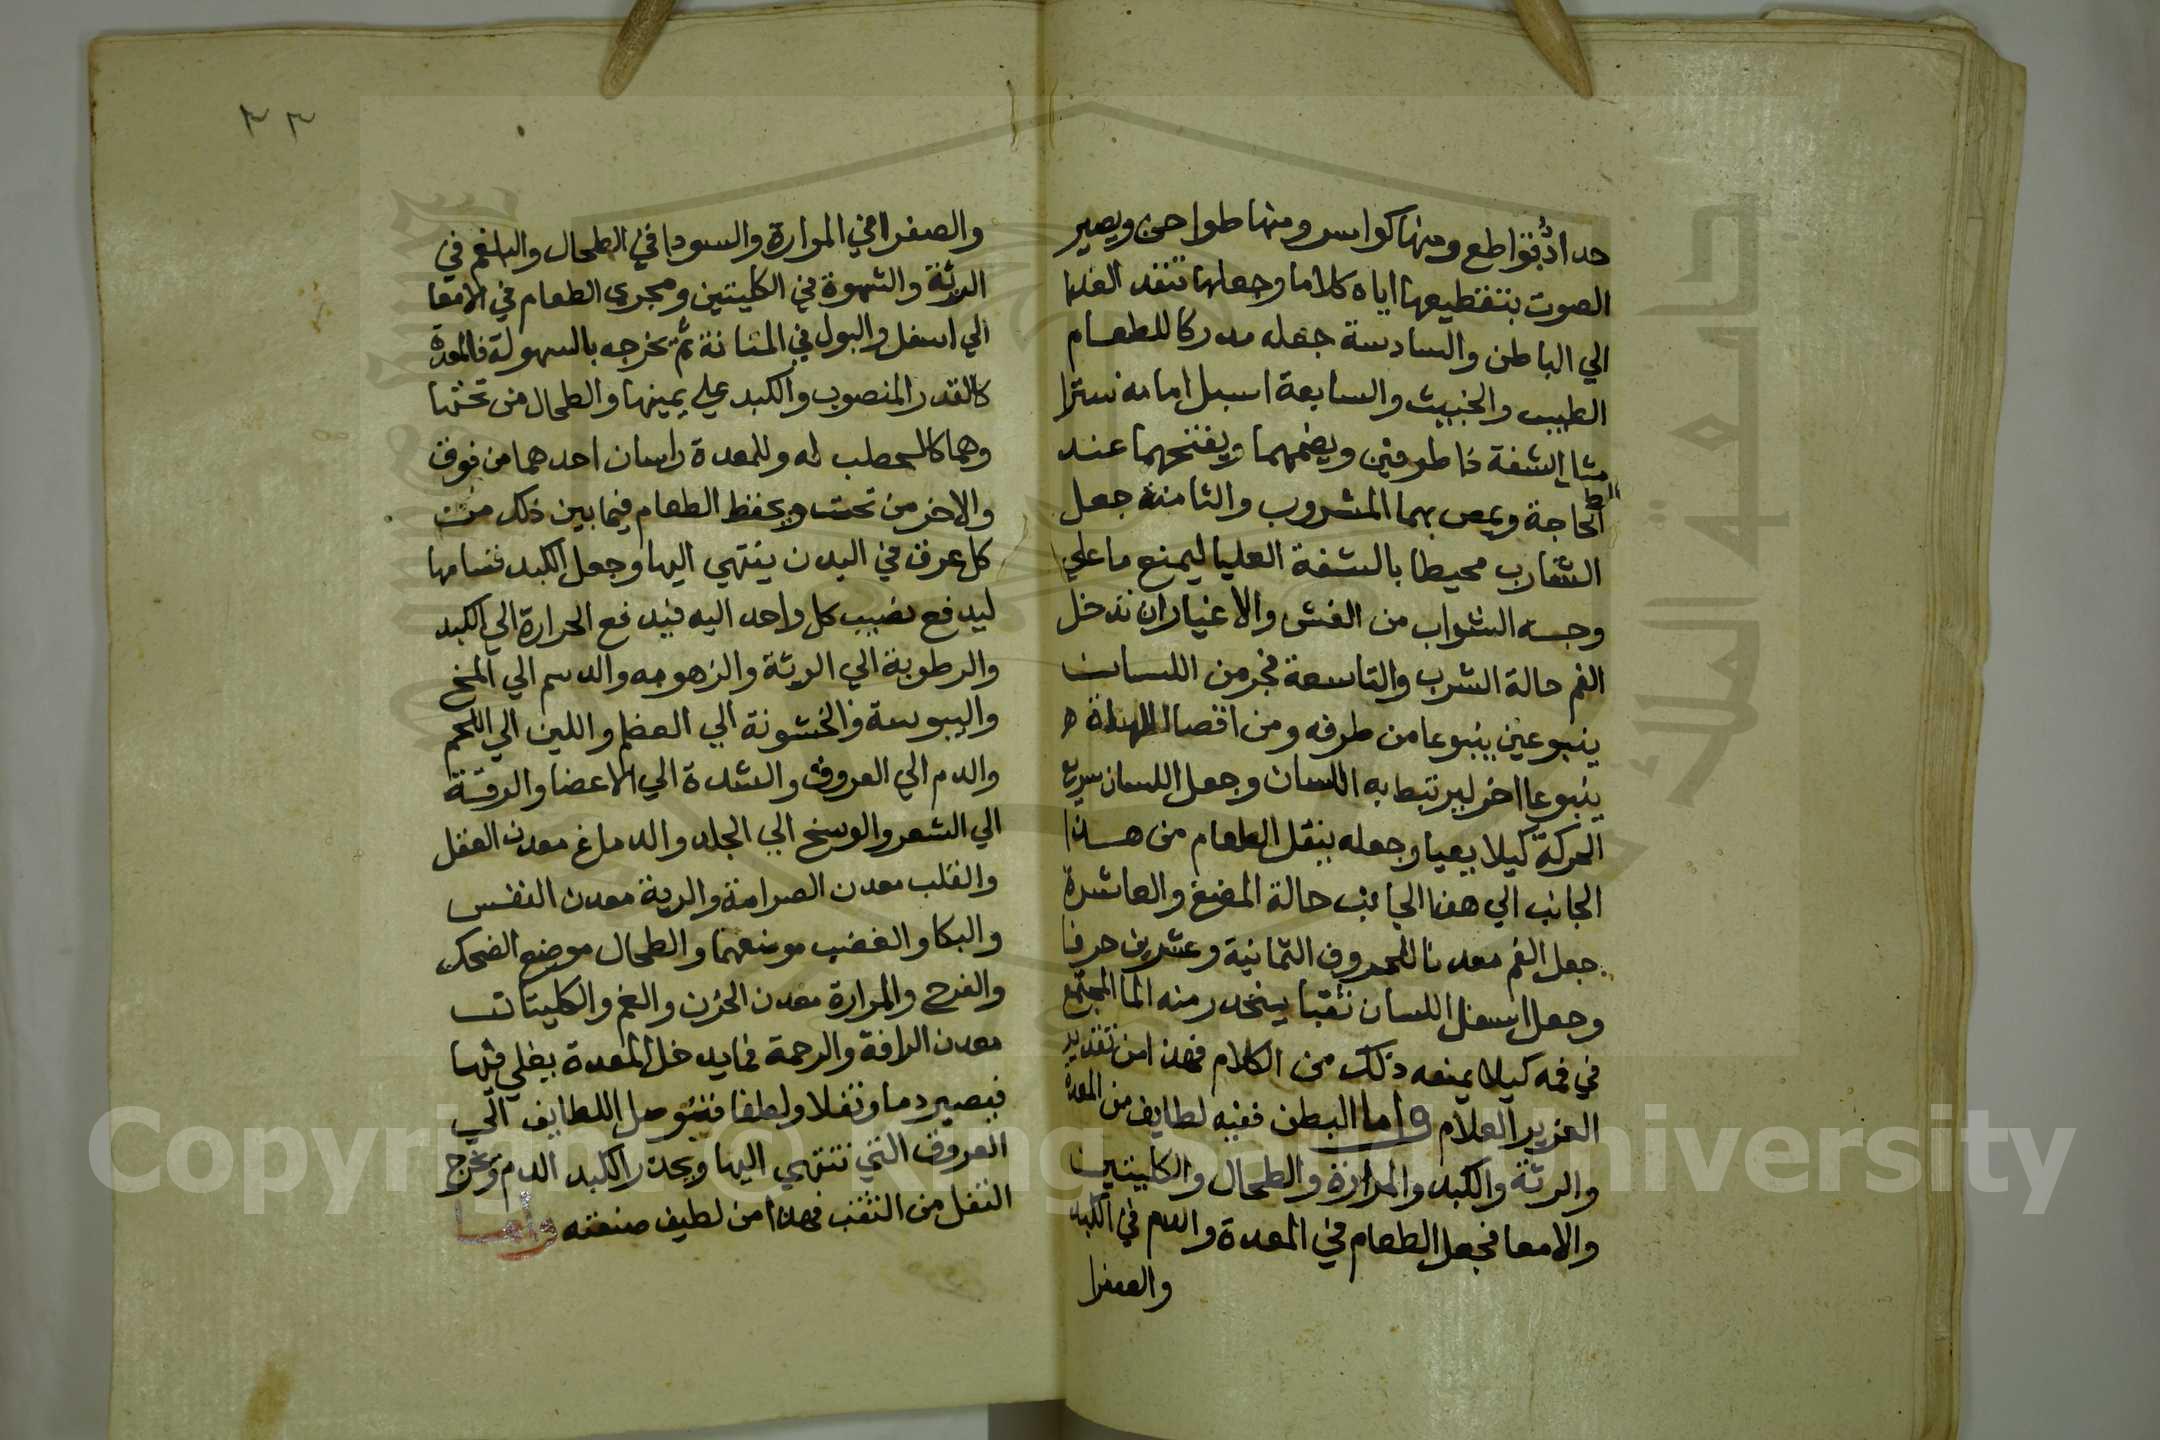 حدادُ قواطع ومنها كواسر ومنها طواحن ويصير
الصوت بتقطيعها اياه كلاما وجعلها تنفذ الغدا
الي الباطن والسادسة جعله مدركا للطعام
الطيب والخبيث والسابعة اسبل امامه سترا
الشفة ذا طرفين ويضمهما ويفتحهما عند
الحاجة ويمص بهما المشروب والثامنة جعل
الشارب محيطا بالشفة العليا ليمنع ما علي
وجه الشراب من الغش والاغيار ان تدخل
الفم حالة الشرب والتاسعة فجر من اللسان
ينبوعين ينبوعا من طرفه ومن اقصا اللهاة
ينبوعا اخر ليرتبط به اللسان وجعل اللسان سريع
الحركة كيلا يعيا وجعله ينقل الطعام من هذا
الجانب الي هذا الجانب حالة المضغ والعاشرة
جعل الفم معدنا للحروف الثمانية وعشرين حرفا
وجعل اسفل اللسان ثقبا ينحدر منه الما المجتمع
في فمه كيلا يمنعه ذلك من الكلام فهذا من تقدير
العزيز العلام واما البطن ففيه لطايف من المعدة
والرئة والكبد والمرارة والطحال والكليتين
والامعا فجعل الطعام في المعدة والدم في الكبد
والصفرا
٣٣
والصفرا في المرارة والسودا في الطحال والبلغم في
الرئة والشهوة في الكليتين ومجري الطعام في الامعا
الي اسفل والبول في المثانة ثم يخرجه بالسهولة فالمعدة
كالقدر المنصوب والكبد علي يمينها والطحال من تحتها
وهما كالحطب له وللمعدة راسان احدهما من فوق
والاخر من تحت ويحفظ الطعام فيما بين ذلك من
كل عرق في البدن ينتهي اليها وجعل الكبد قسامها
ليدفع نصيب كل واحد اليه فيدفع الحرارة الي الكبد
والرطوبة الي الرئة والزهومه والدسم الي المخ
واليبوسة والخشونة الي العظم واللين الي اللحم
والدم الي العروق والشدة الي الاعضا والرقة
الي الشعر والوسخ الي الجلد والدماغ معدن العقل
والقلب معدن الصرامة والرية معدن النفس
والبكا والغضب موضعهما والطحال موضع الضحك
والفرح والمرارة معدن الحزن والغم والكليتان
معدن الرافة والرحمة فما يدخل المعدة يغلي فيها
فيصير دما وثفلا ولطفا فيوصل اللطايف الي
العروق التي تنتهي اليها ويحدر الكبد الدم وتخرج
الثفل من الثقب فهذا من لطيف صنعته واما